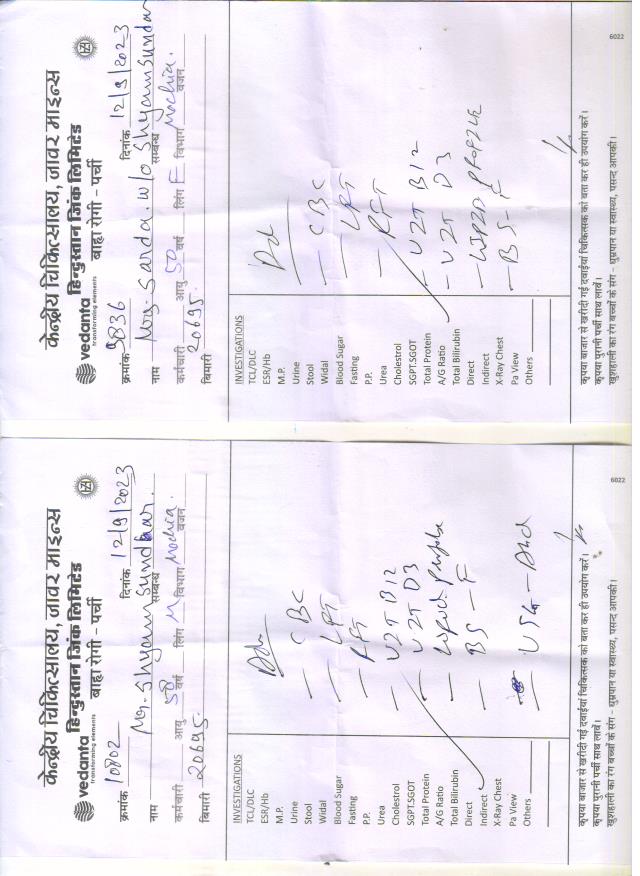 केन्द्रीय चिकित्सालय, जावर माइन्स
हिन्दुस्तान जिंक लिमिटेड
vedanta
transforming elements
बाह्य रोगी – पर्ची
क्रमांक 9836 दिनांक 12/9/2023
नाम Mrs. Sarda w/o Shyam Sundar
सम्बन्ध
कर्मचारी आयु 50 वर्ष लिंग F विभाग Mochia.
वजन
बिमारी 20695.
INVESTIGATIONS
TCL/DLC
ESR/Hb
M.P.
Urine
Stool
Widal
Blood Sugar
Fasting
P.P.
Urea
Cholestrol
SGPT.SGOT
Total Protein
A/G Ratio
Total Bilirubin
Direct
Indirect
X-Ray Chest
Pa View
Others
Adv
– CBC
– LFT
– RFT
– VIT B12
– VIT D3
– LIPID PROFILE
– BS – F
कृपया बाजार से खरीदी गई दवाईयां चिकित्सक को बता कर ही उपयोग करें।
कृपया पुरानी पर्ची साथ लावें।
खुशहाली का रंग बच्चों के संग – धुम्रपान या स्वास्थ्य, पसन्द आपकी।
6022
केन्द्रीय चिकित्सालय, जावर माइन्स
हिन्दुस्तान जिंक लिमिटेड
vedanta
transforming elements
बाह्य रोगी – पर्ची
क्रमांक 10802 दिनांक 12/9/2023
नाम Mr. Shyam Sundhar.
सम्बन्ध
कर्मचारी आयु 50 वर्ष लिंग M विभाग Mochia.
वजन
बिमारी 20695.
INVESTIGATIONS
TCL/DLC
ESR/Hb
M.P.
Urine
Stool
Widal
Blood Sugar
Fasting
P.P.
Urea
Cholestrol
SGPT.SGOT
Total Protein
A/G Ratio
Total Bilirubin
Direct
Indirect
X-Ray Chest
Pa View
Others
Adv
– CBC
– LFT
– RFT
– VIT B12
– VIT D3
– Lipid Profile
– BS – F
– USG – Abd
कृपया बाजार से खरीदी गई दवाईयां चिकित्सक को बता कर ही उपयोग करें।
कृपया पुरानी पर्ची साथ लावें।
खुशहाली का रंग बच्चों के संग – धुम्रपान या स्वास्थ्य, पसन्द आपकी।
6022